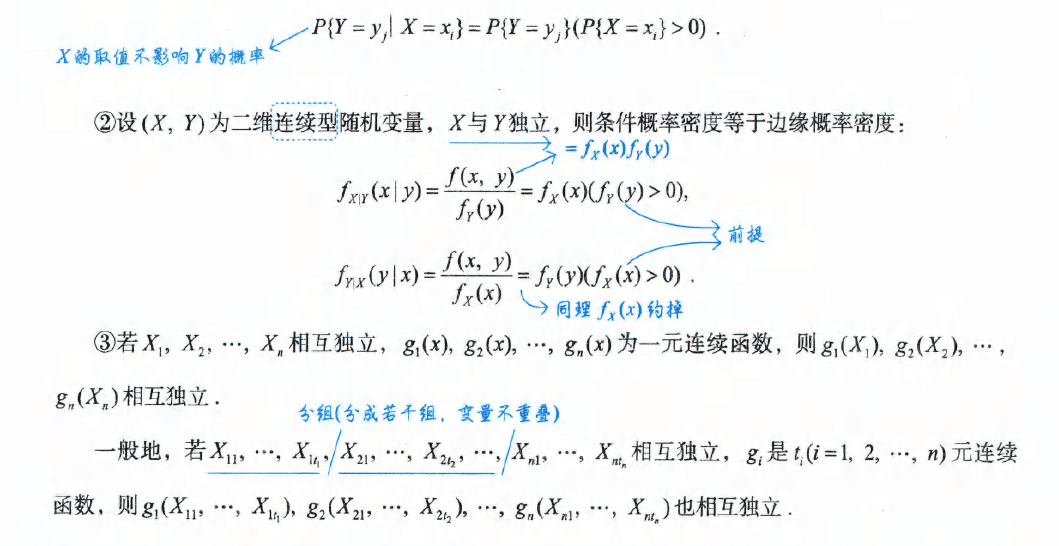 P{Y = y_j | X = x_i} = P{Y = y_j}(P{X = x_i} > 0) .
X的取值不影响Y的概率
②设(X, Y)为二维连续型随机变量，X与Y独立，则条件概率密度等于边缘概率密度：
= f_X(x)f_Y(y)
f_{X|Y}(x|y) = \frac{f(x, y)}{f_Y(y)} = f_X(x)(f_Y(y) > 0),
前提
f_{Y|X}(y|x) = \frac{f(x, y)}{f_X(x)} = f_Y(y)(f_X(x) > 0) .
同理 f_X(x) 约掉
③若 X_1, X_2, ⋯, X_n 相互独立，g_1(x), g_2(x), ⋯, g_n(x) 为一元连续函数，则 g_1(X_1), g_2(X_2), ⋯,
g_n(X_n) 相互独立．
分组(分成若干组，变量不重叠)
一般地，若 X_{11}, ⋯, X_{1t_1}, X_{21}, ⋯, X_{2t_2}, ⋯, X_{n1}, ⋯, X_{nt_n} 相互独立，g_i 是 t_i(i = 1, 2, ⋯, n) 元连续
函数，则 g_1(X_{11}, ⋯, X_{1t_1}), g_2(X_{21}, ⋯, X_{2t_2}), ⋯, g_n(X_{n1}, ⋯, X_{nt_n}) 也相互独立．